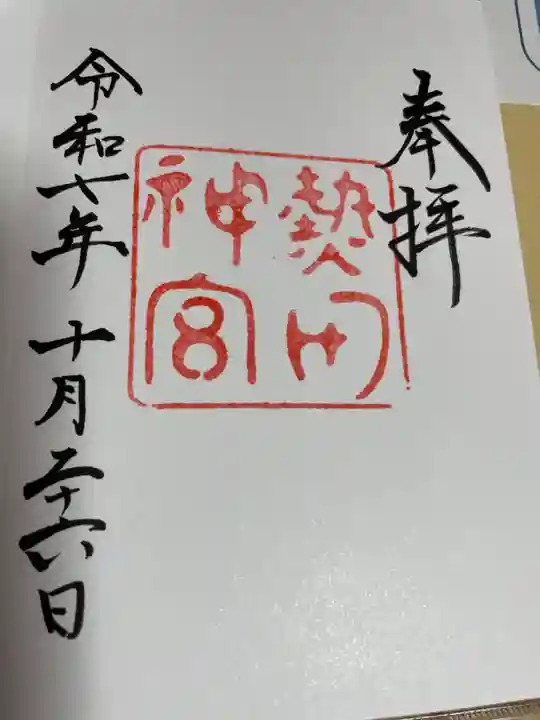 奉拝
熱田
神宮
令和七年十月二十六日